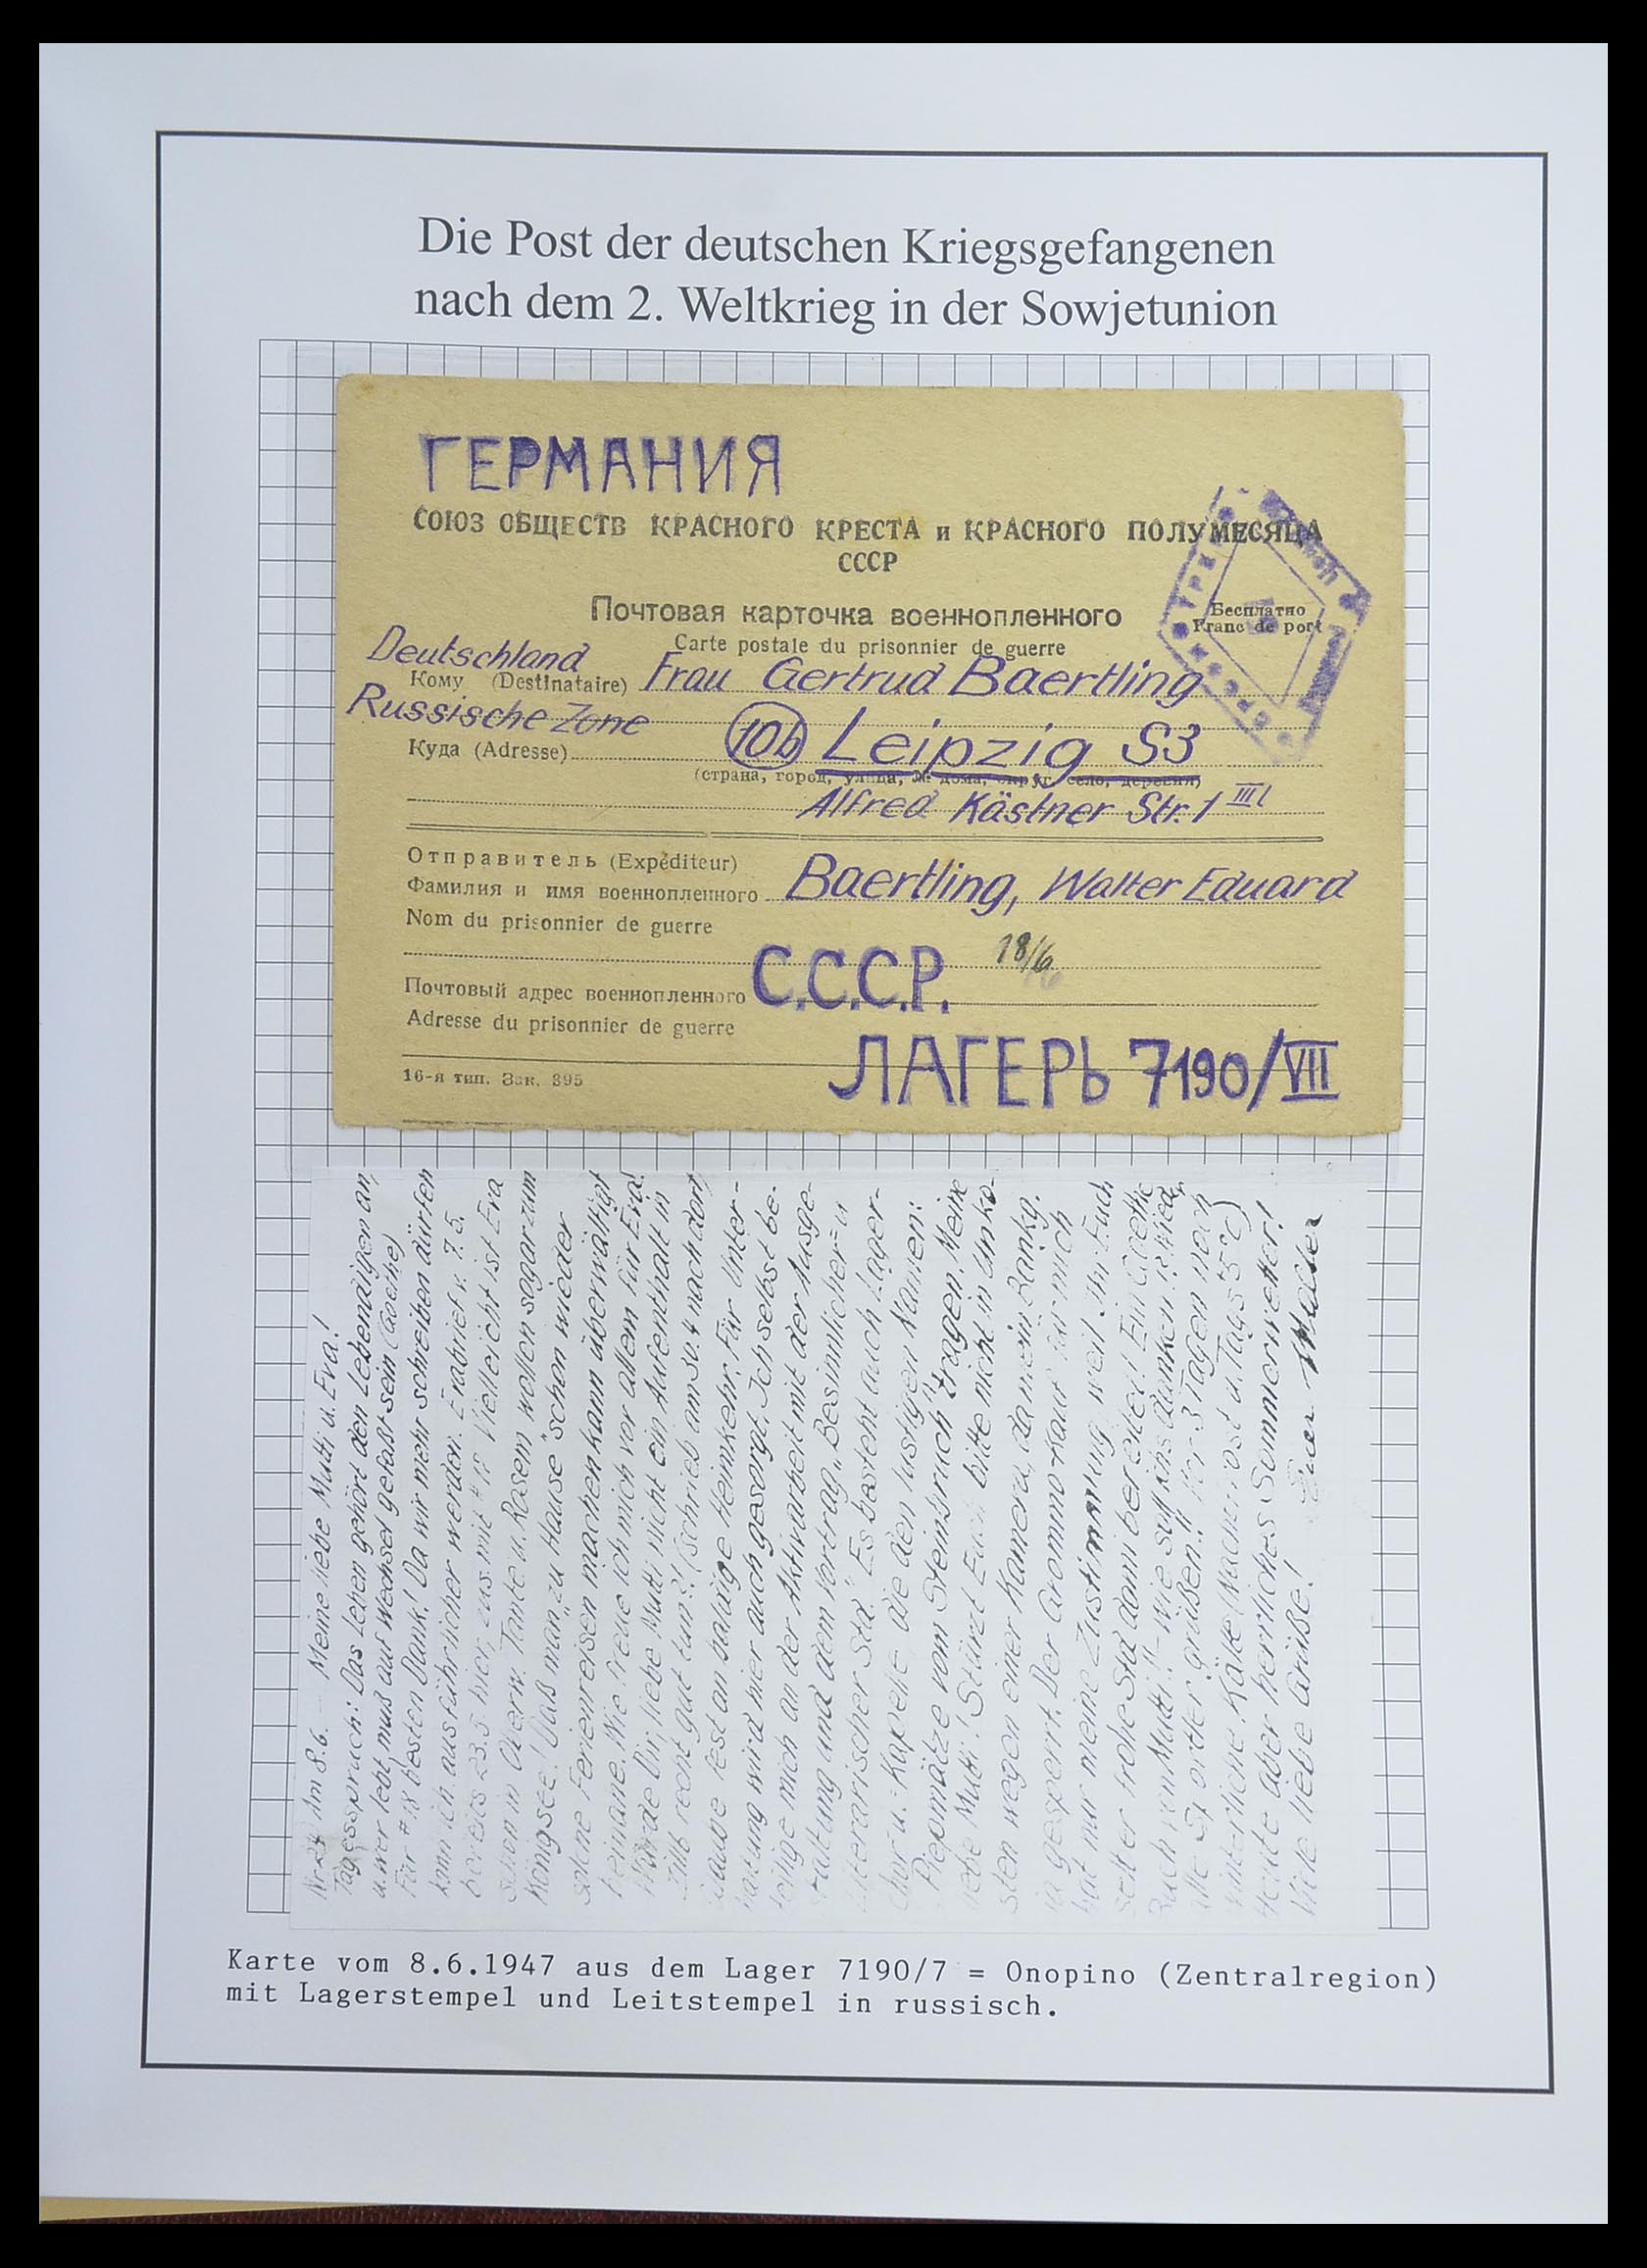 Die Post der deutschen Kriegsgefangenen
nach dem 2. Weltkrieg in der Sowjetunion
ГЕРМАНИЯ
СОЮЗ ОБЩЕСТВ КРАСНОГО КРЕСТА и КРАСНОГО ПОЛУМЕСЯЦА
СССР
Почтовая карточка военнопленного
Бесплатно
Franc de port
Carte postale du prisonnier de guerre
Deutschland
Кому (Destinataire) Frau Gertrud Baertling
Russische Zone
10b Leipzig S3
Куда (Adresse)
(страна, город, улица, № дома, округ, село, деревня)
Alfred Kästner Str. 1 III l
Отправитель (Expéditeur)
Фамилия и имя военнопленного Baertling, Walter Eduard
Nom du prisonnier de guerre
18/6
Почтовый адрес военнопленного С.С.С.Р.
Adresse du prisonnier de guerre
ЛАГЕРЬ 7190/VII
16-я тип. Зак. 395
Am 8.6. Meine liebe Mutti u. Eva!
Tagesspruch: Das Leben gehört den Lebendigen an,
u. wer lebt, muß auf Wechsel gefaßt sein (Goethe)
Für #18 besten Dank! Da wir mehr schreiben dürfen
kann ich ausführlicher werden. Evabrief v. 7.5.
bereits 23.5. hier, zus. mit #18 Vielleicht ist Eva
schon in Oberw. Tante u. Rasem wollen sogar zum
Königssee! Daß man „zu Hause" schon wieder
solche Ferienreisen machen kann überwältigt
beinahe. Wie freue ich mich vor allem für Eva!
Würde Dir, liebe Mutti nicht ein Aufenthalt in
Zillb recht gut tun?! (schrieb am 30.4 nach dort)
fest an baldige Heimkehr. Für Unter-
haltung wird hier auch gesorgt. Ich selbst be-
teilige mich an der Aktivarbeit mit der Ausge-
staltung und dem Vortrag „Besinnlicher- u
literarischer Std." Es besteht auch Lager-
chor u. -Kapelle die den lustigen Namen:
„Piepmätze vom Steinbruch" tragen. Meine
liebe Mutti! Stürzt Euch bitte nicht in Unko-
sten wegen einer Kamera, da mein Bankg.
ja gesperrt. Der Grammo-Kauf für mich
hat nur meine Zustimmung weil Ihr Euch
selber frohe Std damit bereitet! Ein Goethe
Buch von Mutti!! - wie soll ichs danken?
alle Sp ortler grüßen!! Vor 3 Tagen noch
winterliche Kälte (Nachtfrost u. Tags 5°C)
Heute aber herrliches Sommerwetter!
Viele liebe Grüße! Euer Walter
Karte vom 8.6.1947 aus dem Lager 7190/7 = Onopino (Zentralregion)
mit Lagerstempel und Leitstempel in russisch.